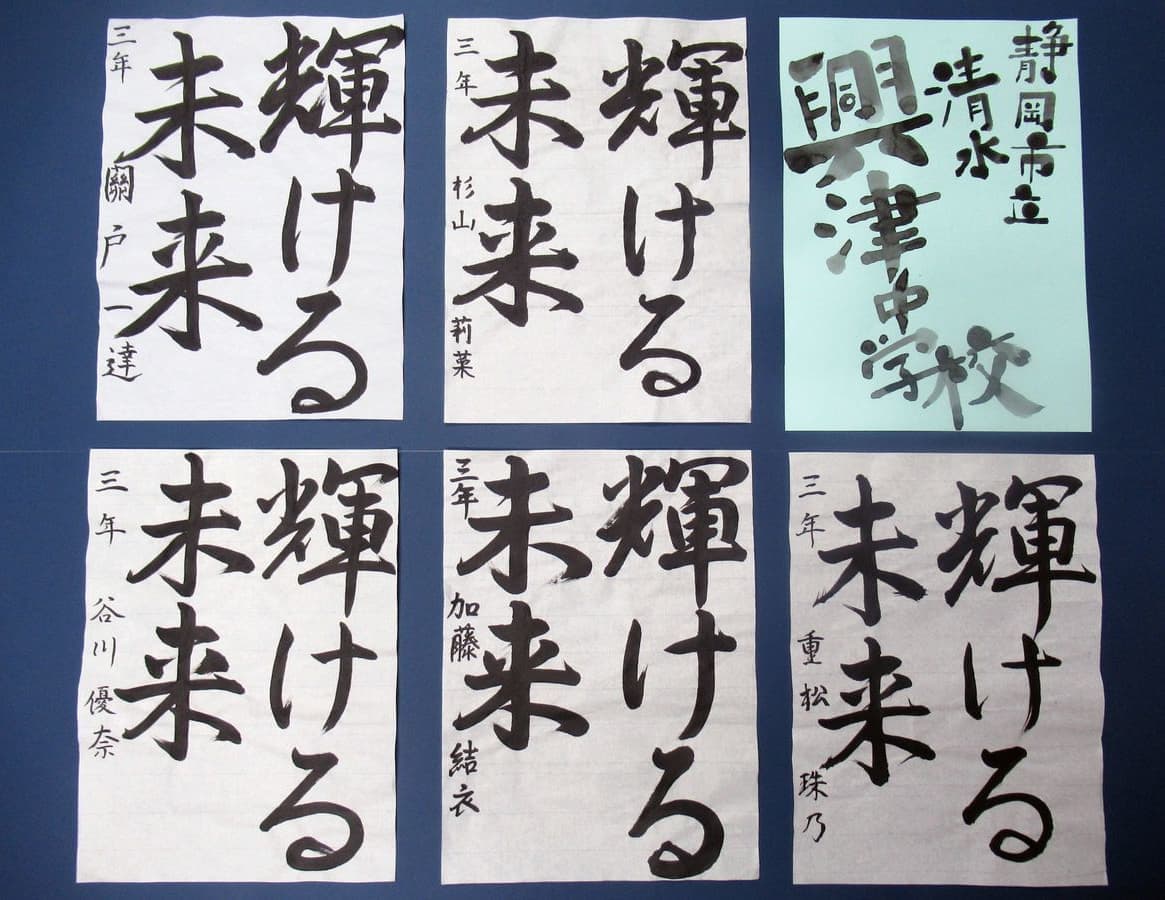 静岡市立
清水
興津中
学校
輝ける
未来
三年 杉山 莉菓
輝ける
未来
三年 關戸一達
輝ける
未来
三年 重松 珠乃
輝ける
未来
三年 加藤 結衣
輝ける
未来
三年 谷川 優奈